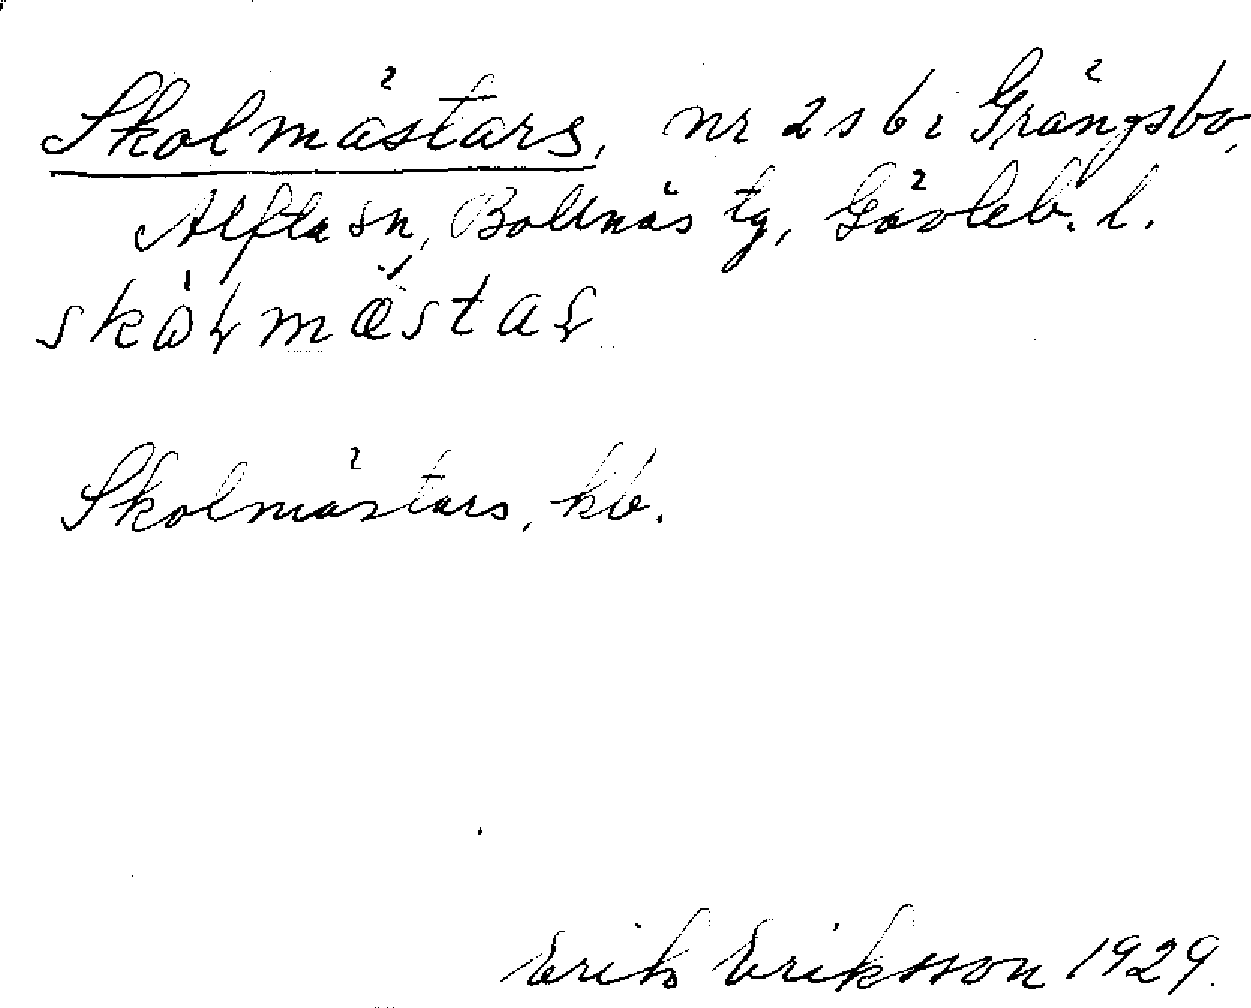 Skolmästars, nr 2 s 6 i Grängsbo,
Alfta sn, Bollnäs tg, Gävleb. l.
Skolmästars, kb.
Erik Eriksson 1929.